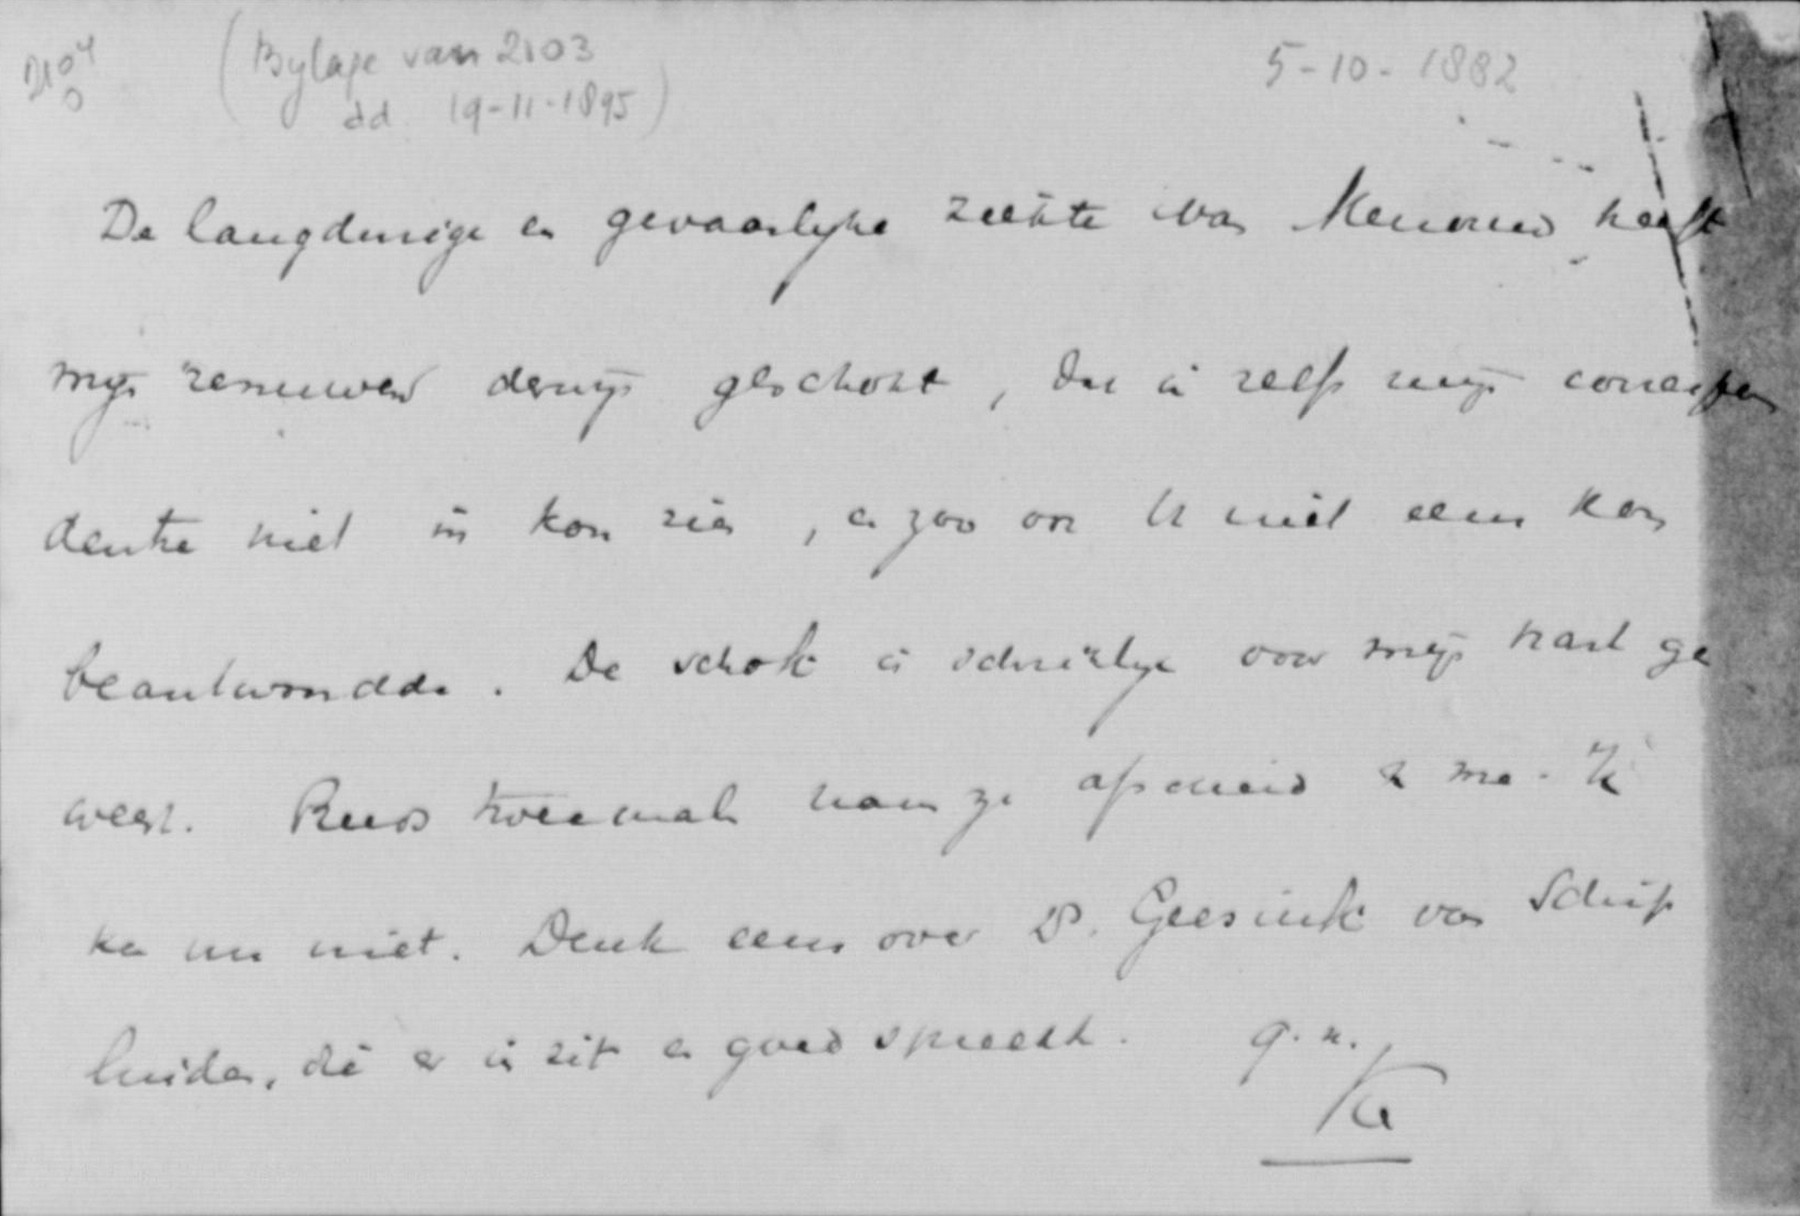 2104
0
(Bylage van 2103
dd. 19-11-1895)
5-10-1882
De langdurige en gevaarlyke ziekte van Mevrouw heeft
mijn zenuwen dermij geschokt, dat ik zelfs mijn correspon
dentie niet in kon zien, en zoo ook U niet eens kon
beantwoordde. De schok is schrikkelyk voor mijn hart ge
weest. Reeds tweemaal nam ze afscheid v. me. Ik
kan nu niet. Denk eens over Ds. Geesink van Schip
luiden, die er in zit en goed spreekt. q. n.
Ku